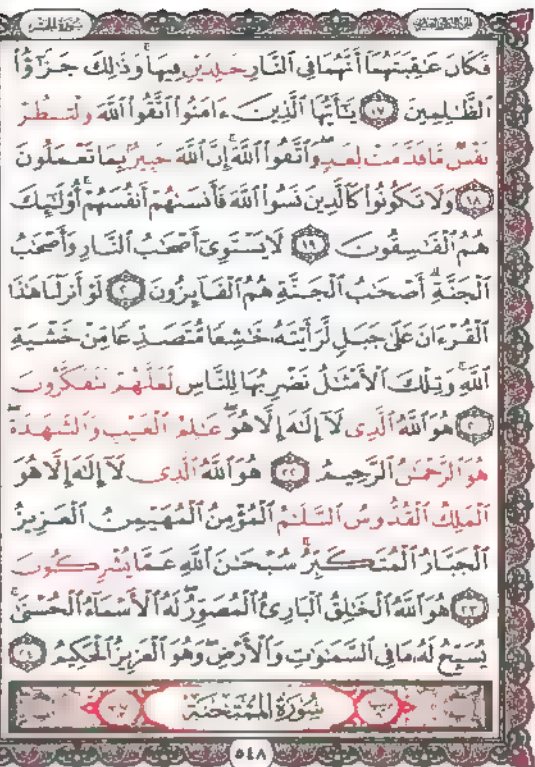 سُورَةُ الحَشْرِ
الجُزْءُ الثَّامِنُ وَالعِشْرُونَ
فَكَانَ عَٰقِبَتَهُمَآ أَنَّهُمَا فِي ٱلنَّارِ خَٰلِدَيْنِ فِيهَا ۚ وَذَٰلِكَ جَزَٰٓؤُا۟
ٱلظَّٰلِمِينَ ١٧ يَٰٓأَيُّهَا ٱلَّذِينَ ءَامَنُوا۟ ٱتَّقُوا۟ ٱللَّهَ وَلْتَنظُرْ
نَفْسٌ مَّا قَدَّمَتْ لِغَدٍ ۖ وَٱتَّقُوا۟ ٱللَّهَ ۚ إِنَّ ٱللَّهَ خَبِيرٌۢ بِمَا تَعْمَلُونَ
١٨ وَلَا تَكُونُوا۟ كَٱلَّذِينَ نَسُوا۟ ٱللَّهَ فَأَنسَىٰهُمْ أَنفُسَهُمْ ۚ أُو۟لَٰٓئِكَ
هُمُ ٱلْفَٰسِقُونَ ١٩ لَا يَسْتَوِىٓ أَصْحَٰبُ ٱلنَّارِ وَأَصْحَٰبُ
ٱلْجَنَّةِ ۚ أَصْحَٰبُ ٱلْجَنَّةِ هُمُ ٱلْفَآئِزُونَ ٢٠ لَوْ أَنزَلْنَا هَٰذَا
ٱلْقُرْءَانَ عَلَىٰ جَبَلٍ لَّرَأَيْتَهُۥ خَٰشِعًا مُّتَصَدِّعًا مِّنْ خَشْيَةِ
ٱللَّهِ ۚ وَتِلْكَ ٱلْأَمْثَٰلُ نَضْرِبُهَا لِلنَّاسِ لَعَلَّهُمْ يَتَفَكَّرُونَ
٢١ هُوَ ٱللَّهُ ٱلَّذِى لَآ إِلَٰهَ إِلَّا هُوَ ۖ عَٰلِمُ ٱلْغَيْبِ وَٱلشَّهَٰدَةِ ۖ
هُوَ ٱلرَّحْمَٰنُ ٱلرَّحِيمُ ٢٢ هُوَ ٱللَّهُ ٱلَّذِى لَآ إِلَٰهَ إِلَّا هُوَ
ٱلْمَلِكُ ٱلْقُدُّوسُ ٱلسَّلَٰمُ ٱلْمُؤْمِنُ ٱلْمُهَيْمِنُ ٱلْعَزِيزُ
ٱلْجَبَّارُ ٱلْمُتَكَبِّرُ ۚ سُبْحَٰنَ ٱللَّهِ عَمَّا يُشْرِكُونَ
٢٣ هُوَ ٱللَّهُ ٱلْخَٰلِقُ ٱلْبَارِئُ ٱلْمُصَوِّرُ ۖ لَهُ ٱلْأَسْمَآءُ ٱلْحُسْنَىٰ ۚ
يُسَبِّحُ لَهُۥ مَا فِى ٱلسَّمَٰوَٰتِ وَٱلْأَرْضِ ۖ وَهُوَ ٱلْعَزِيزُ ٱلْحَكِيمُ ٢٤
سُورَةُ المُمْتَحَنَةِ
٥٤٨